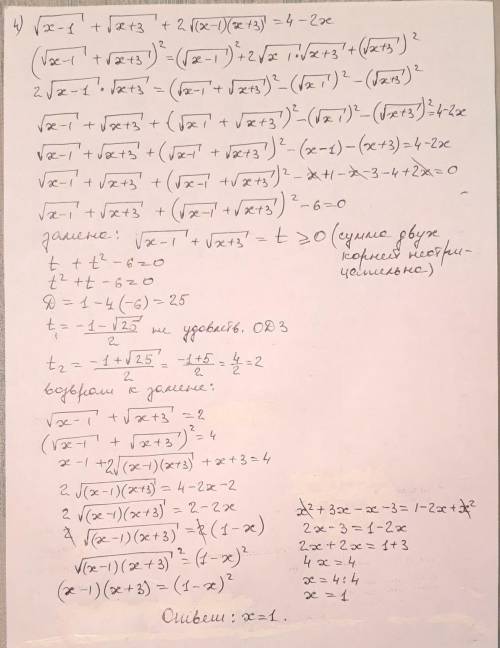 4) √(x-1) + √(x+3) + 2√((x-1)(x+3)) = 4-2x
(√(x-1) + √(x+3))² = (√(x-1))² + 2√(x 1)·√(x+3) + (√(x+3))²
2√(x-1)·√(x+3) = (√(x-1) + √(x+3))² - (√(x 1))² - (√(x+3))²
√(x-1) + √(x+3) + (√(x 1) + √(x+3))² - (√(x 1))² - (√(x+3))² = 4-2x
√(x-1) + √(x+3) + (√(x 1) + √(x+3))² - (x-1) - (x+3) = 4-2x
√(x-1) + √(x+3) + (√(x-1) + √(x+3))² - x+1-x-3-4+2x = 0
√(x-1) + √(x+3) + (√(x-1) + √(x+3))² - 6 = 0
замена: √(x-1) + √(x+3) = t ⩾ 0 (сумма двух
корней неотри-
цательна)
t + t² - 6 = 0
t² + t - 6 = 0
D = 1 - 4(-6) = 25
t₁ = (-1-√25)/2 не удовлетв. ОДЗ
t₂ = (-1+√25)/2 = (-1+5)/2 = 4/2 = 2
возврат к замене:
√(x-1) + √(x+3) = 2
(√(x-1) + √(x+3))² = 4
x-1 + 2√((x-1)(x+3)) + x+3 = 4
2√((x-1)(x+3)) = 4-2x-2
2√((x-1)(x+3)) = 2-2x
2√((x-1)(x+3)) = 2(1-x)
√((x-1)(x+3))² = (1-x)²
(x-1)(x+3) = (1-x)²
x²+3x-x-3 = 1-2x+x²
2x-3 = 1-2x
2x+2x = 1+3
4x = 4
x = 4:4
x = 1
Ответ: x=1.